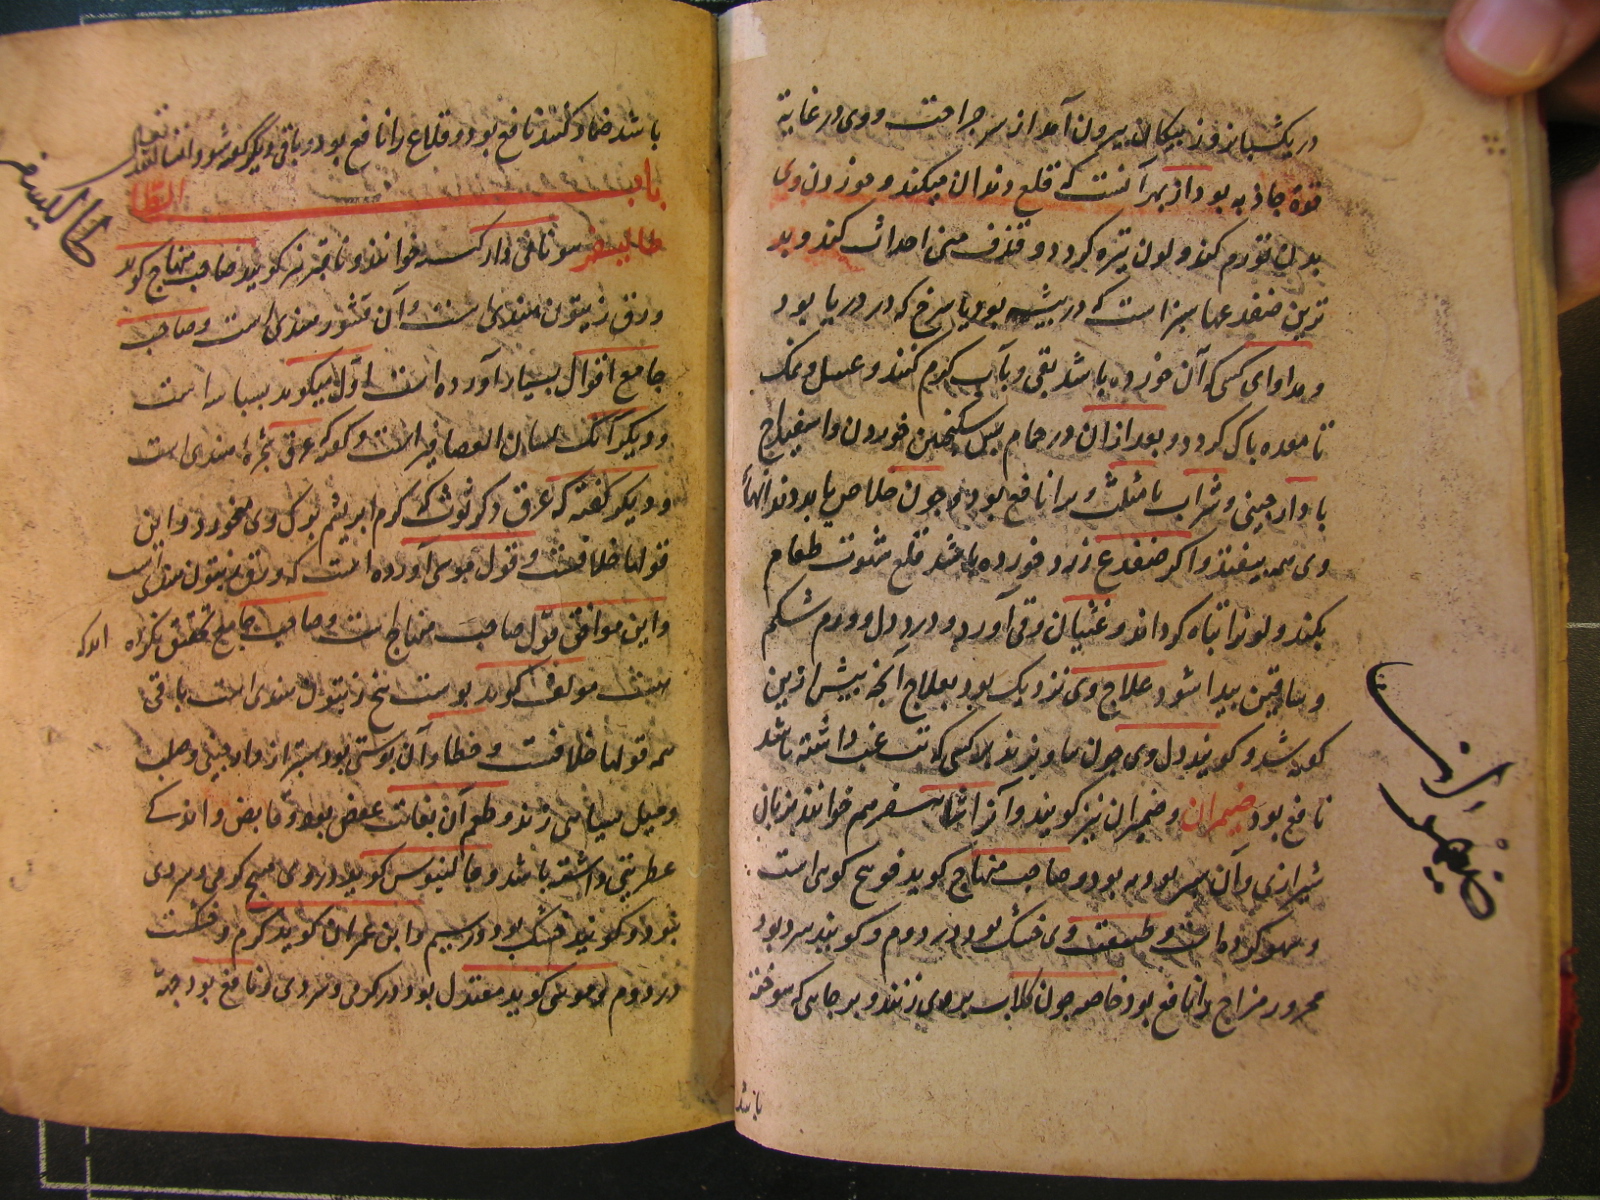 در یکشبانروز پیکان بیرون آمد از سر جراحت و وی در غایة
قوة جاذبه بود از بهر آنست که قلع دندان میکند و موزدن وی
بدن تورم کند و لون تیره کردد و قذف منی احداث کند و بد
ترین ضفدعها سبز است که در بیشه بود یا سرخ که در دریا بود
و مداوای کسی که آن خورده باشد بقی و بآب کرم کنند و عسل و نمک
تا معده پاک کردد و بعد ازان در حمام پس سکنجبین خوردن و اسفیداج
با دارچینی و شراب یا مثلث ویرا نافع بود و چون خلاص یابد دندانهاء
وی همه بیفتد و اکر ضفدع زرد خورده باشد قلع شهوت طعام
بکند و لونرا تباه کرداند و غثیان و قی آورد و درد دل و ورم شکم
و ساقین پیدا شود علاج وی نزدیک بود بعلاج آنچه پیش ازین
کفته شد و کویند دل وی چون بیاویزند بر کسی که تب غب داشته باشد
نافع بود ضیمران و ضمیران نیز کویند و آنرا شاهسفرم خوانند بزبان
شیرازی و آن بود و صاحب منهاج کوید فوتنج کوهی است
و سهو کرده است و طبیعت وی خشک بود در دوم و کویند سرد بود
محرور مزاج را نافع بود خاصه چون کلاب بر وی زنند و بر جایی که سوخته
باشد
ضیمران
باشد ضماد کنند نافع بود و قلاع را نافع بود و باقی دیگر کفته شود انشاالله تعالی
باب الطا
طالیسفر خوانند و نیز کویند صاحب منهاج کوید
ورق زیتون هندی است و آن قشور هندی است و صاحب
جامع اقوال بسیار آورده است اول میکوید بسباسه است
و دیکر آنک لسان العصافیر است و کفته عرق شجرة هندی است
و دیکر کفته که عرق توت که کرم ابریشم برک وی میخورد و این
قولها خلافست و قول موسی آورده است که ورق زیتون هندی است
و این موافق قول صاحب منهاج است و صاحب جامع تحقیق نکرده
است مولف کوید پوست بیخ زیتون هندی است باقی
همه قولها خلافست و خطا و آن پوستی بود سبزتر از دارچینی و صلب
و میل بسیاهی زند و طعم آن بغایت عفص بود و قابض و اندکی
عطریتی داشته باشد و جالینوس کوید در وی هیچ کرمی و سردی
نبود و کویند خشک بود در سیم و ابن عمران کوید کرم و خشکست
در دوم و موسی کوید معتدل بود در کرمی و سردی و نافع بود جهة
طالیسفر